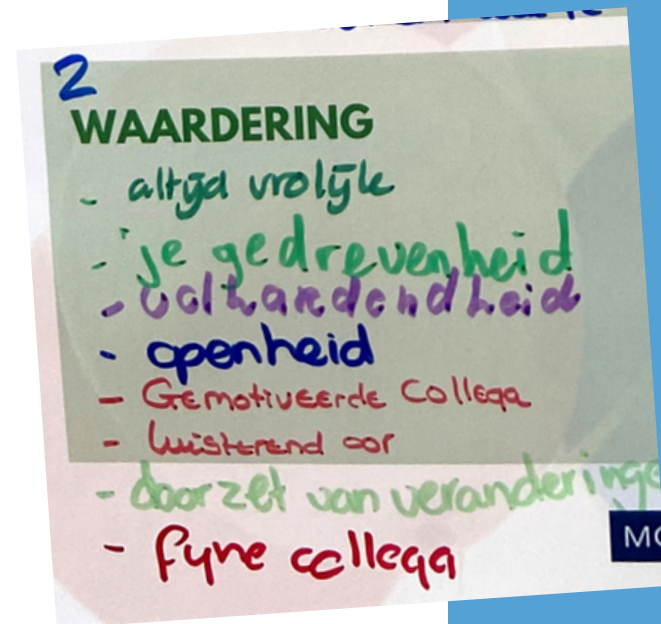 2
WAARDERING
- altijd vrolijk
- je gedrevenheid
- volhardendheid
- openheid
- Gemotiveerde Collega
- luisterend oor
- doorzet van veranderinge
- fijne collega
MO